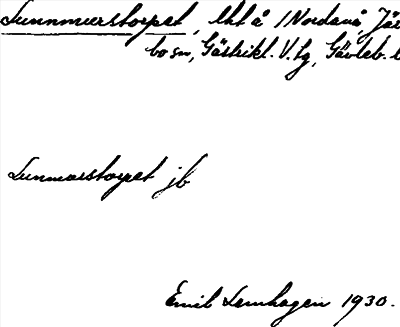 Sunnmurstorpet, lht å 1 Nordanå, Jär
bo sn, Gästrikl. V. tg, Gävleb. l
Sunmorstorpet jb
Emil Lernhagen 1930.